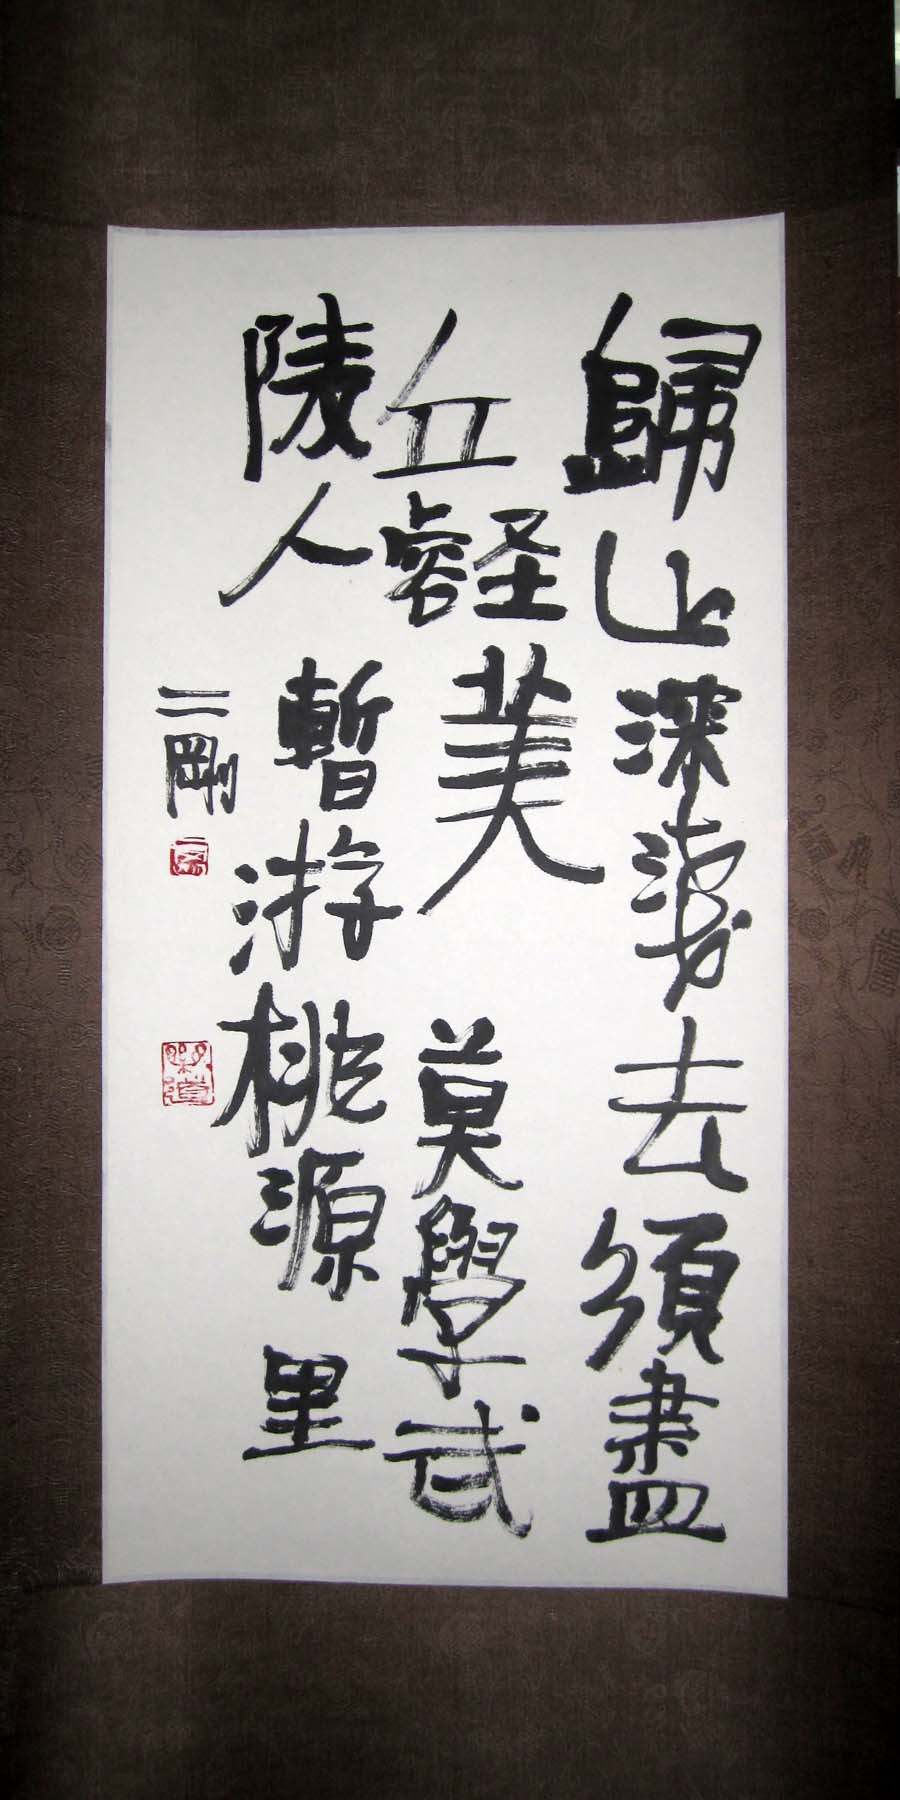 歸山深淺去須盡
丘壑美莫學武
陵人暫游桃源里
二剛